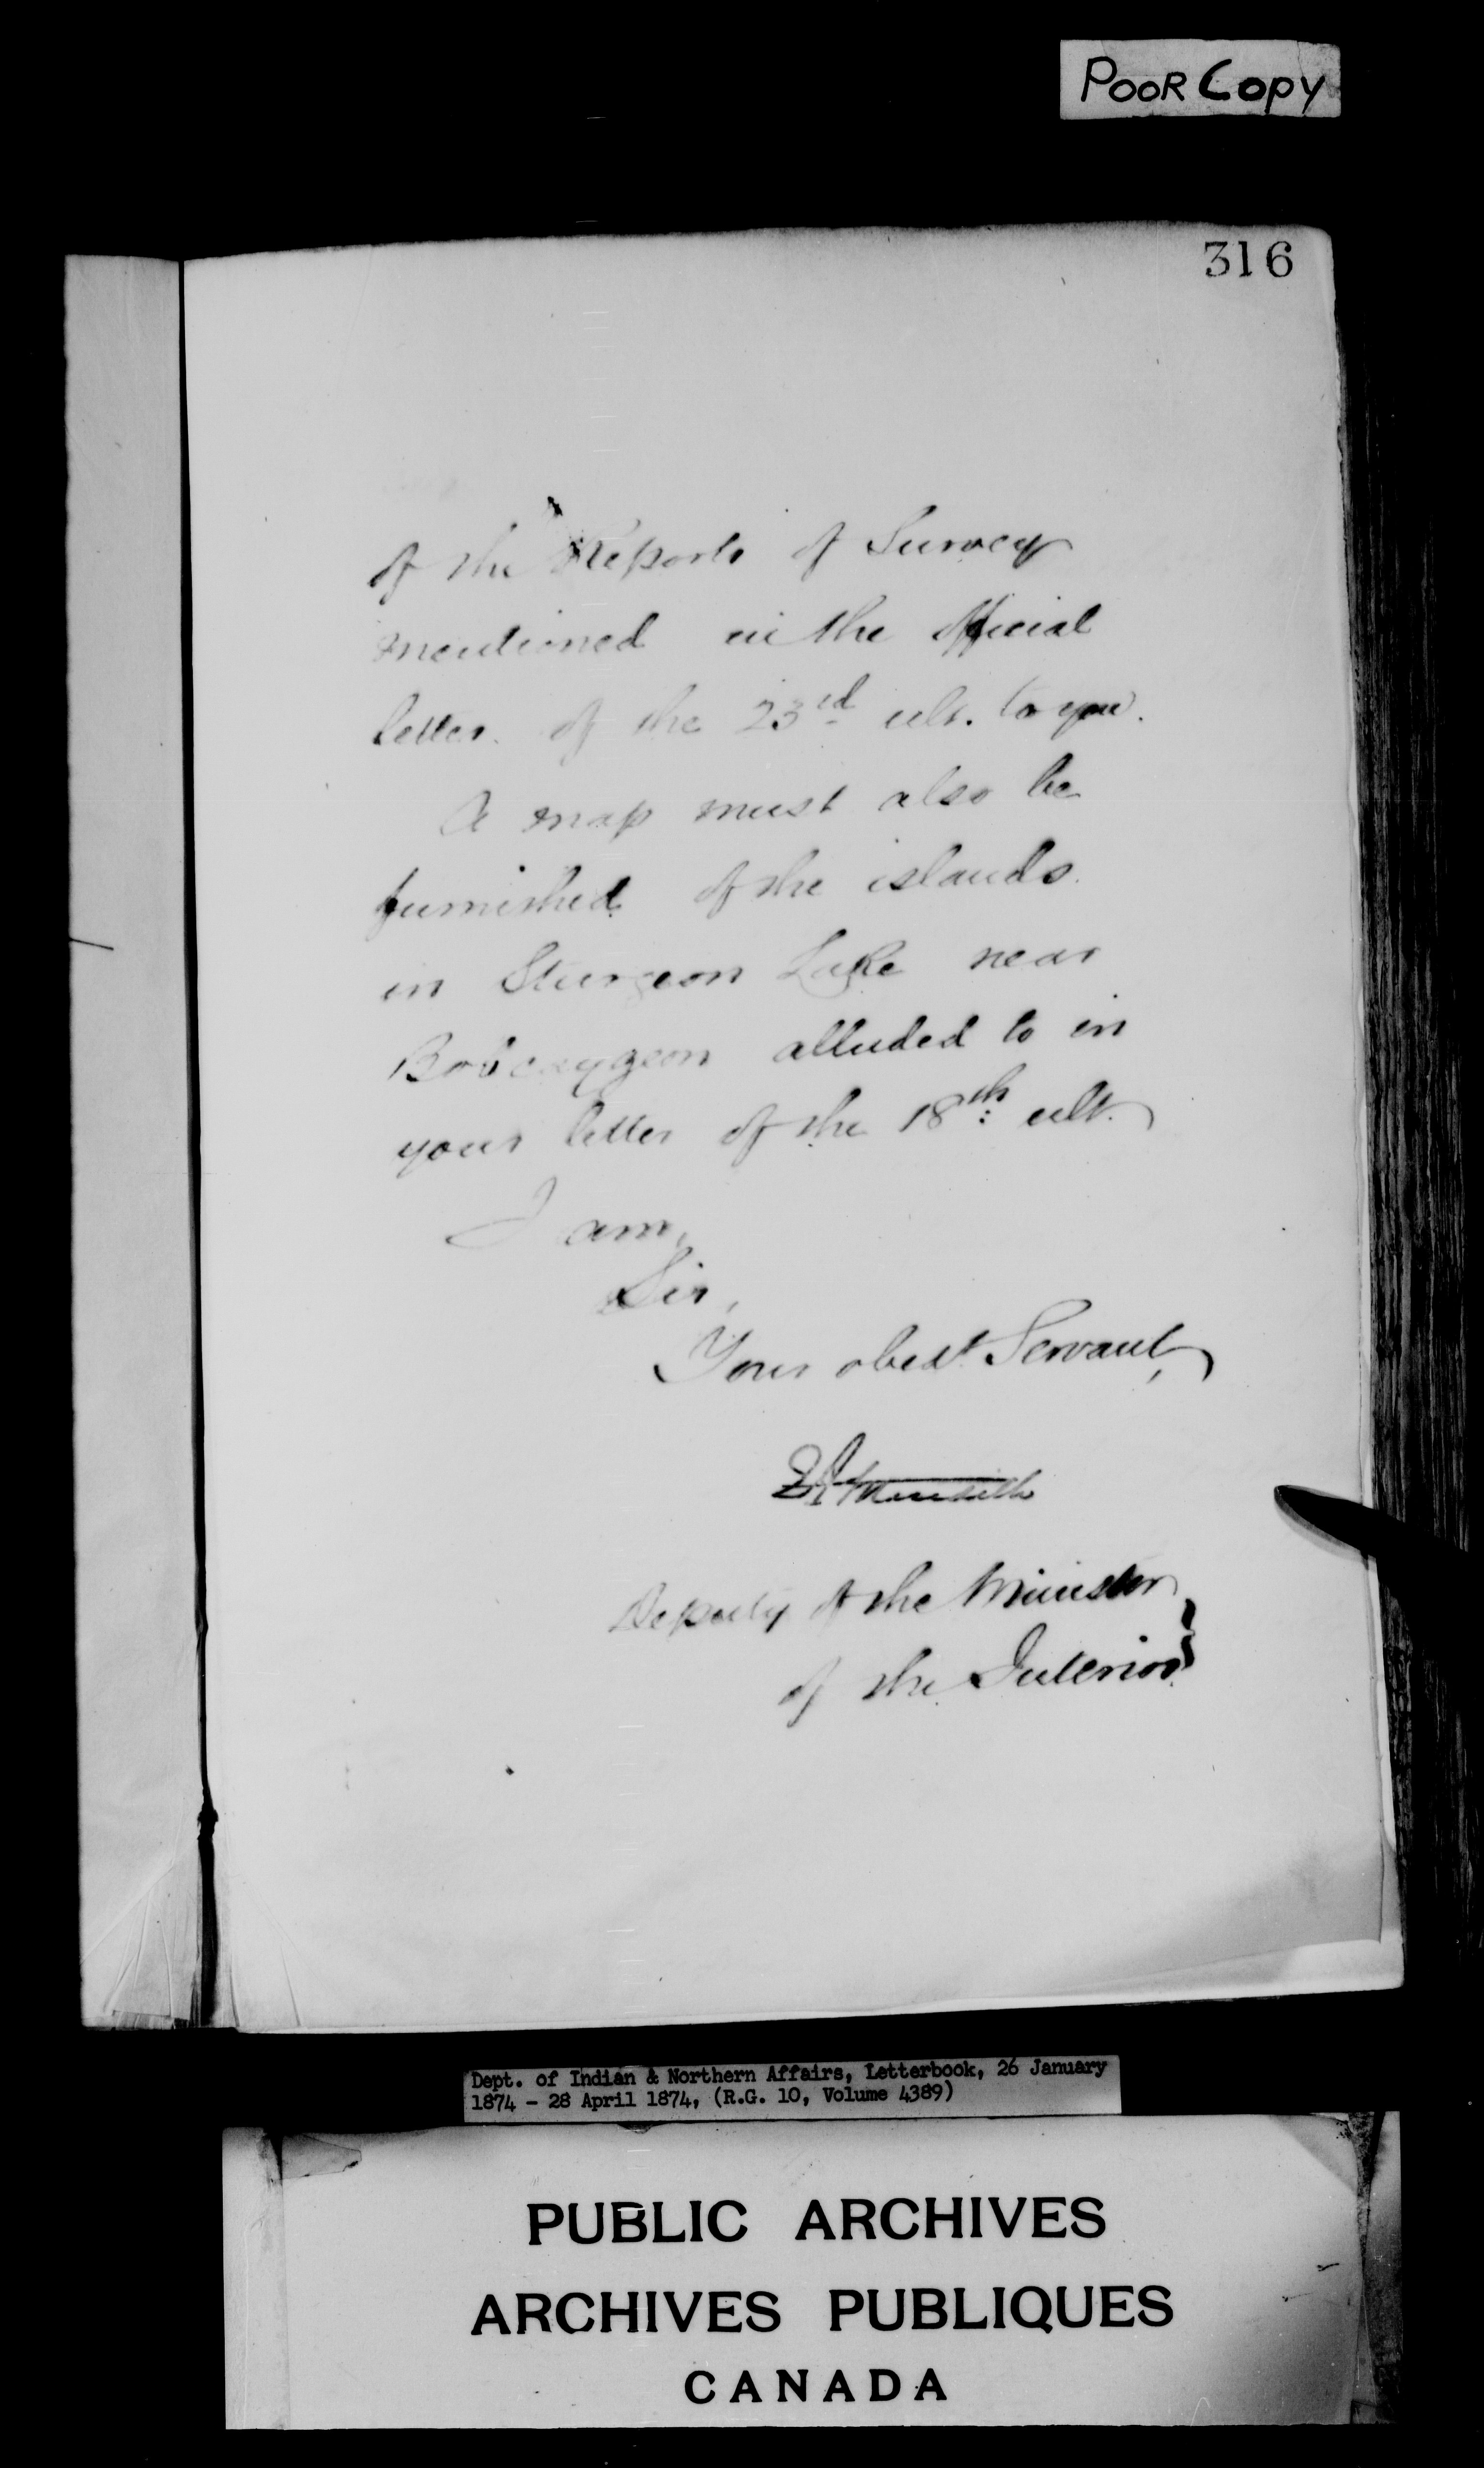 POOR COPY
316
of the Reports of Survey
mentioned in the official
letter of the 23rd ult. to you.
A map must also be
furnished of the islands
in Sturgeon Lake near
Bobcaygeon alluded to in
your letter of the 18th: ult.
I am,
Sir,
Your obedt Servant,
Meredith
Deputy of the Minister
of the Interior
Dept. of Indian & Northern Affairs, Letterbook, 26 January
1874 - 28 April 1874, (R.G. 10, Volume 4389)
PUBLIC ARCHIVES
ARCHIVES PUBLIQUES
CANADA